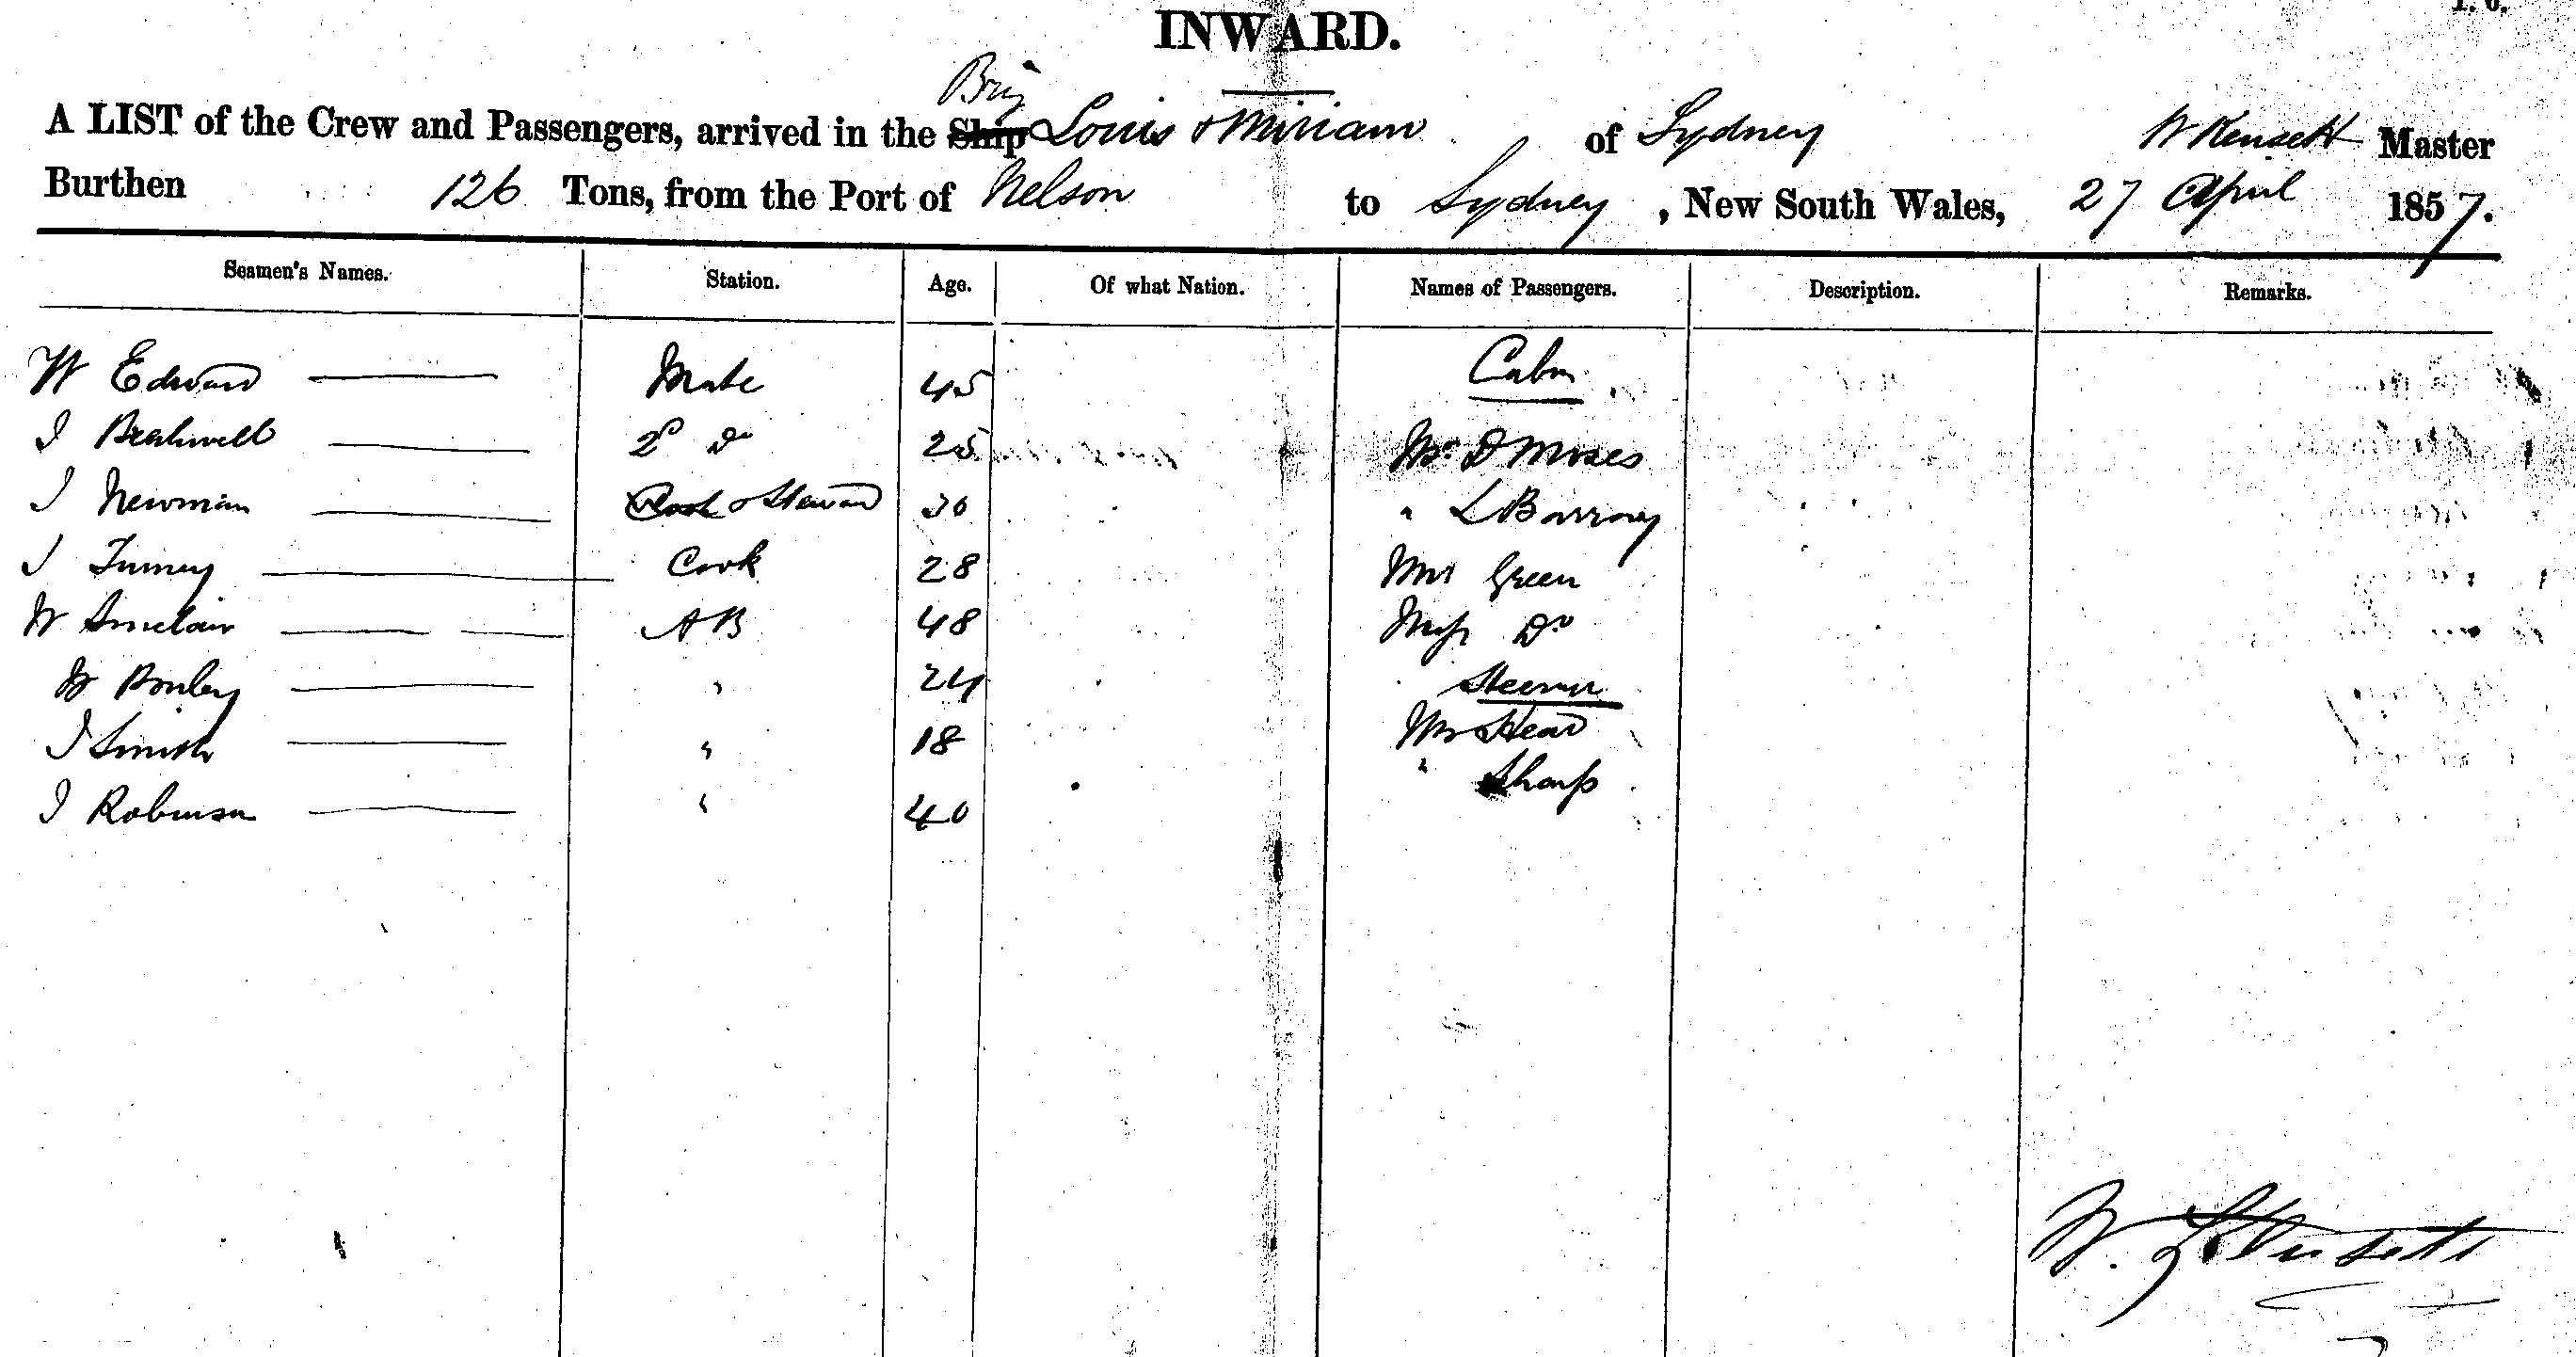 INWARD.
Brig
A LIST of the Crew and Passengers, arrived in the Ship Louis & Miriam of Sydney W Kensett Master
Burthen 126 Tons, from the Port of Nelson to Sydney, New South Wales, 27 April 1857.
Seamen's Names. Station. Age. Of what Nation. Names of Passengers. Description. Remarks.
W Edward Mate 45 Cabin
J 2d Do 25 Mr D Moses
J Newman & Steward 30 " L Barrow
J Cook 28 Mrs Green
W Sinclair AB 48 Miss Do
W " 24 Steerage
J Smith " 18 Mr Head
J Robinson " 40 " Sharp
W. Kensett